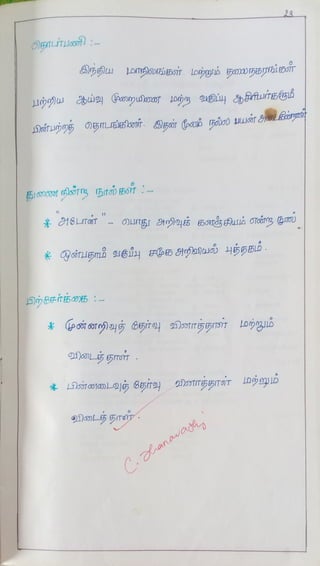 23
தொடர்பணி :-
இந்திய மாநிலங்கள் மற்றும் தலைநகரங்கள்
பற்றிய ஆய்வு முறையினை மற்ற வகுப்பு ஆசிரியர்களும்
பின்பற்றத் தொடங்கினர். இதன் மூலம் நல்ல பயன்
துணை நின்ற நூல்கள் :-
* "அடோன்" - பொது அறிவுக் களஞ்சியம் என்ற நூல்
* ஒன்பதாம் வகுப்பு சமூக அறிவியல் புத்தகம்.
பிற்சேர்க்கை :-
* முன்னறிவுத் தேர்வு வினாத்தாள் மற்றும்
விடைத்தாள்.
* பின்னடைவுத் தேர்வு வினாத்தாள் மற்றும்
விடைத்தாள்.